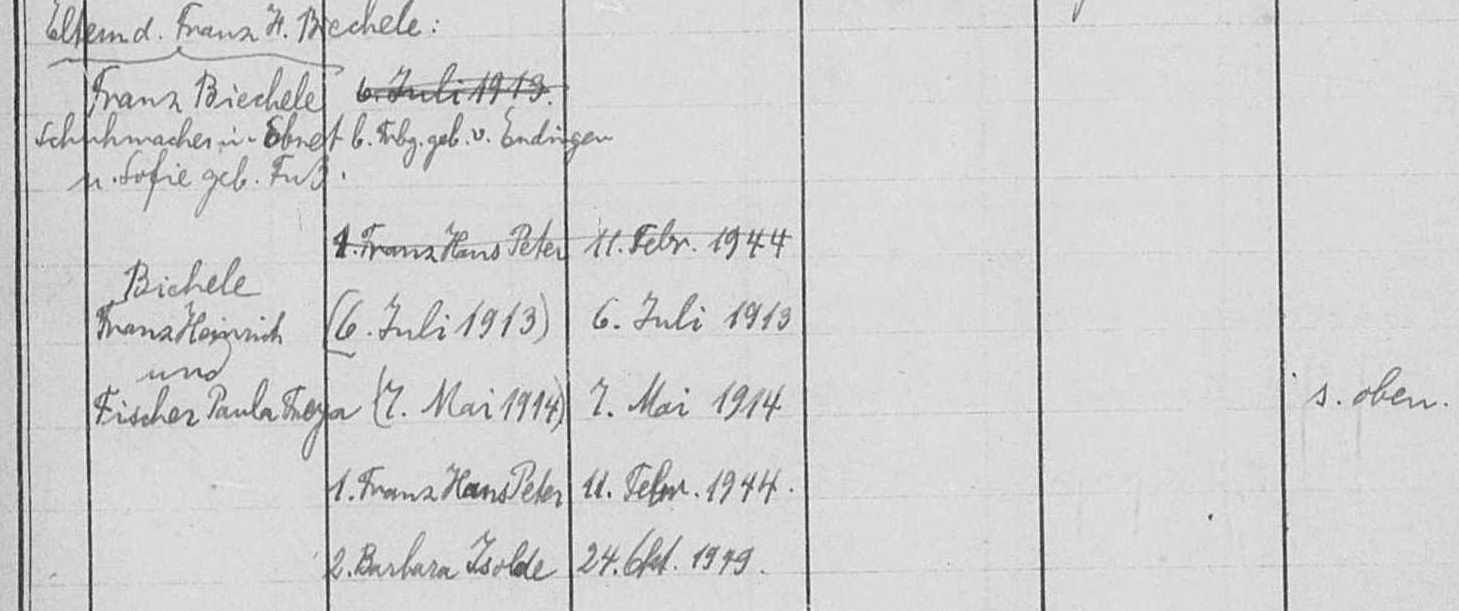 Eltern d. Franz H. Biechele:
Franz Biechele 6. Juli 1913.
Schuhmacher in Ebnet b. Frbg. geb. v. Endingen
u. Sofie geb. Fuß.
1. Franz Hans Peter 11. Febr. 1944
Bichele
Franz Heinrich (6. Juli 1913) 6. Juli 1913
und
Fischer Paula Freya (7. Mai 1914) 7. Mai 1914 s. oben.
1. Franz Hans Peter 11. Febr. 1944.
2. Barbara Isolde 24. Okt. 1949.